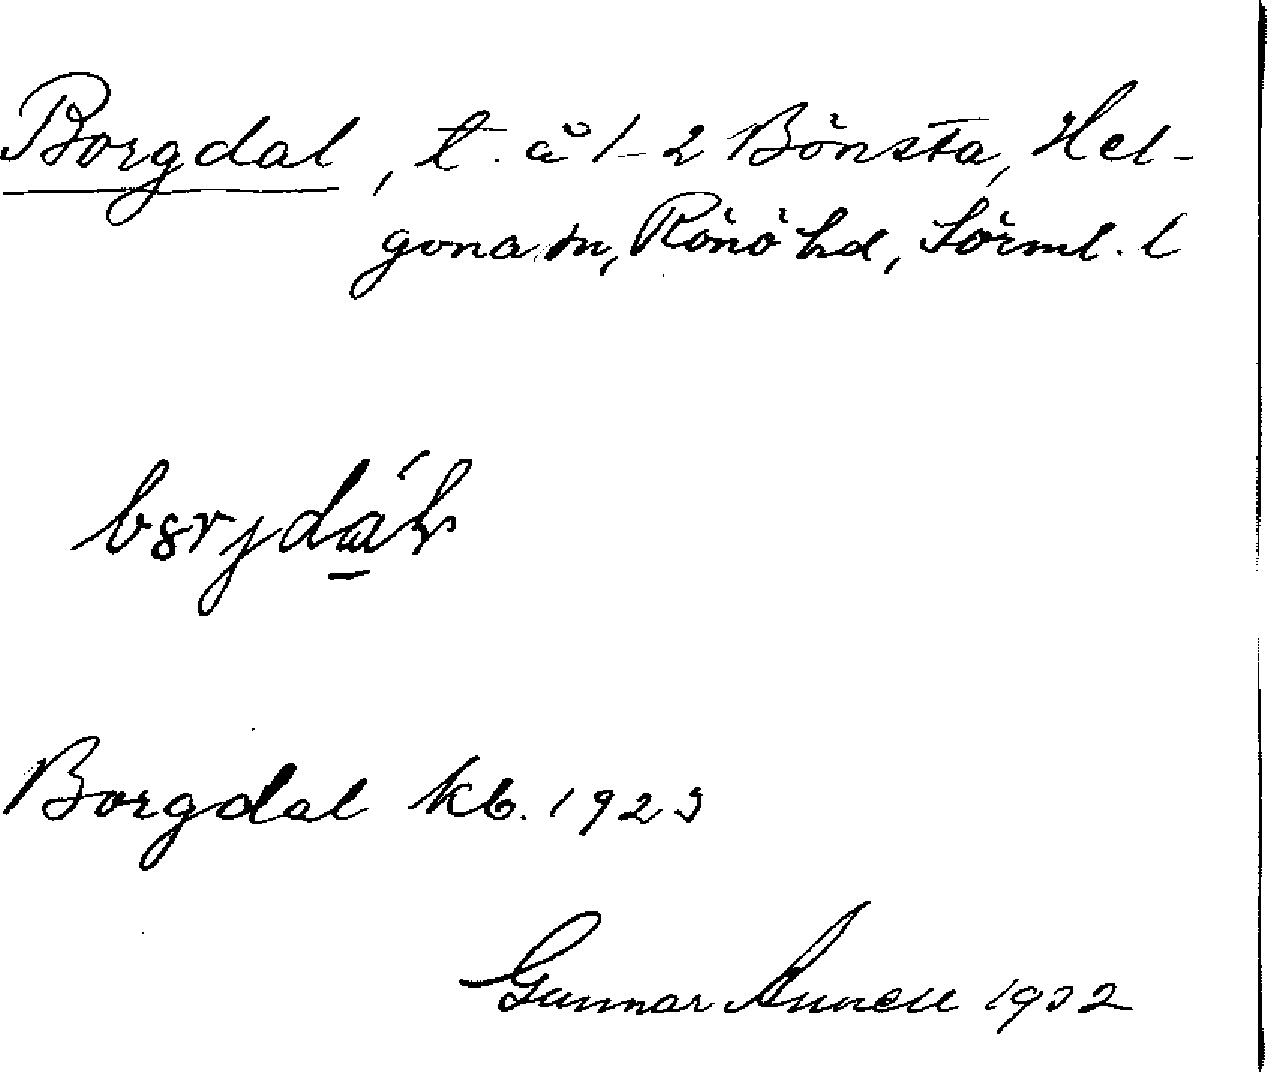 Borgdal, t. å 1-2 Bönsta, Hel-
gona sn, Rönö hd, Sörml. l
Borgdal kb. 1923
Gunnar Annell 1932